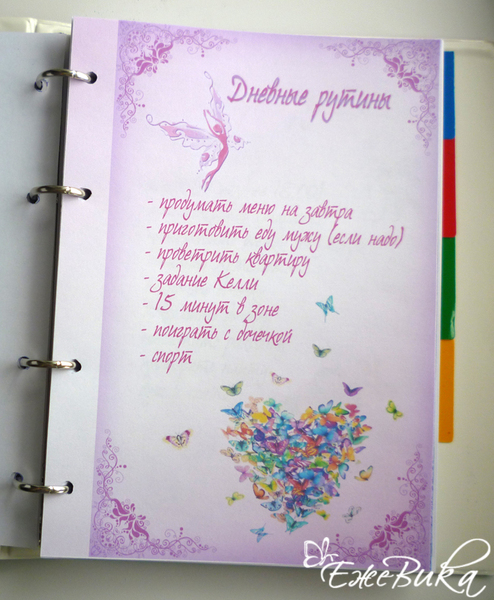 Дневные рутины
- продумать меню на завтра
- приготовить еду мужу (если надо)
- проветрить квартиру
- задание Келли
- 15 минут в зоне
- поиграть с дочечкой
- спорт
ЕжеВика